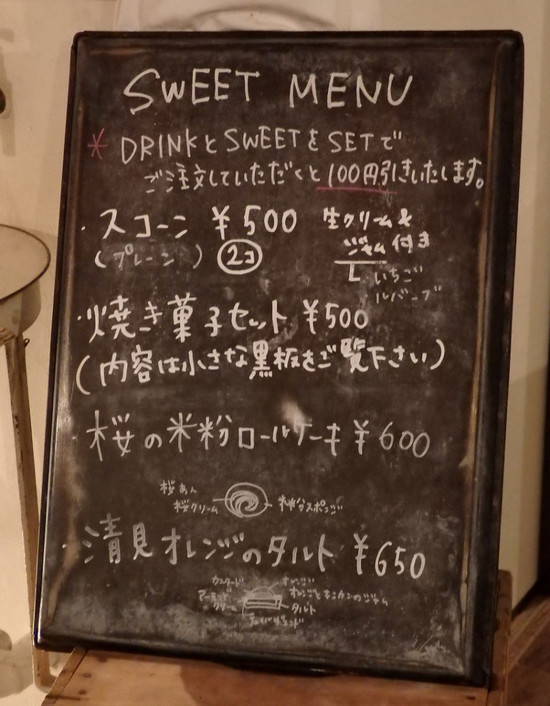 SWEET MENU
* DRINKとSWEETをSETで
ご注文していただくと100円引きいたします。
・スコーン ¥500 生クリーム&
ジャム付き
(プレーン) 2コ
いちご
ルバーブ
・焼き菓子セット ¥500
(内容は小さな黒板をご覧下さい)
・桜の米粉ロールケーキ ¥600
桜あん
桜クリーム 米粉スポンジ
・清見オレンジのタルト ¥650
カスタード オレンジ
アーモンド オレンジとキンカンのジャム
クリーム タルト